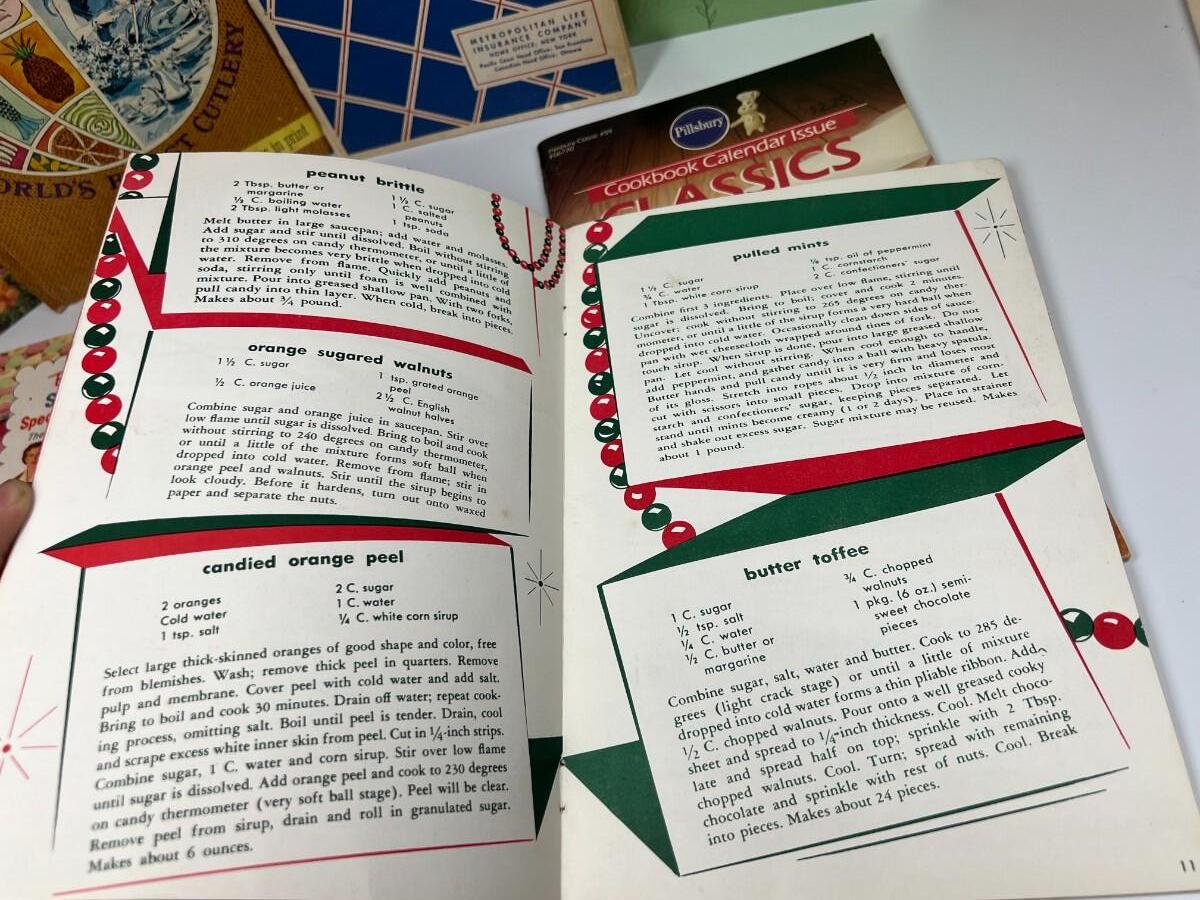 WORLD'S
CUTLERY
in print
METROPOLITAN LIFE
INSURANCE COMPANY
HOME OFFICE: NEW YORK
Pacific Coast Head Office: San Francisco
Canadian Head Office: Ottawa
Pillsbury
Cookbook Calendar Issue
CLASSICS
peanut brittle
2 Tbsp. butter or
margarine
½ C. boiling water
2 Tbsp. light molasses
1 ½ C. sugar
1 C. salted
peanuts
1 tsp. soda
Melt butter in large saucepan; add water and molasses.
Add sugar and stir until dissolved. Boil without stirring
to 310 degrees on candy thermometer, or until a little of
the mixture becomes very brittle when dropped into cold
water. Remove from flame. Quickly add peanuts and
soda, stirring only until foam is well combined with
mixture. Pour into greased shallow pan. With two forks,
pull candy into thin layer. When cold, break into pieces.
Makes about ¾ pound.
orange sugared walnuts
1 ½ C. sugar
½ C. orange juice
1 tsp. grated orange
peel
2 ½ C. English
walnut halves
Combine sugar and orange juice in saucepan. Stir over
low flame until sugar is dissolved. Bring to boil and cook
without stirring to 240 degrees on candy thermometer,
or until a little of the mixture forms soft ball when
dropped into cold water. Remove from flame; stir in
orange peel and walnuts. Stir until the sirup begins to
look cloudy. Before it hardens, turn out onto waxed
paper and separate the nuts.
candied orange peel
2 oranges
Cold water
1 tsp. salt
2 C. sugar
1 C. water
¼ C. white corn sirup
Select large thick-skinned oranges of good shape and color, free
from blemishes. Wash; remove thick peel in quarters. Remove
pulp and membrane. Cover peel with cold water and add salt.
Bring to boil and cook 30 minutes. Drain off water; repeat cook-
ing process, omitting salt. Boil until peel is tender. Drain, cool
and scrape excess white inner skin from peel. Cut in ¼-inch strips.
Combine sugar, 1 C. water and corn sirup. Stir over low flame
until sugar is dissolved. Add orange peel and cook to 230 degrees
on candy thermometer (very soft ball stage). Peel will be clear.
Remove peel from sirup, drain and roll in granulated sugar.
Makes about 6 ounces.
pulled mints
1 ½ C. sugar
¾ C. water
1 Tbsp. white corn sirup
⅛ tsp. oil of peppermint
1 C. cornstarch
2 C. confectioners' sugar
Combine first 3 ingredients. Place over low flame, stirring until
sugar is dissolved. Bring to boil; cover and cook 2 minutes.
Uncover; cook without stirring to 265 degrees on candy ther-
mometer, or until a little of the sirup forms a very hard ball when
dropped into cold water. Occasionally clean down sides of sauce-
pan with wet cheesecloth wrapped around tines of fork. Do not
touch sirup. When sirup is done, pour into large greased shallow
pan. Let cool without stirring. When cool enough to handle,
add peppermint, and gather candy into a ball with heavy spatula.
Butter hands and pull candy until it is very firm and loses most
of its gloss. Stretch into ropes about ½ inch in diameter and
cut with scissors into small pieces. Drop into mixture of corn-
starch and confectioners' sugar, keeping pieces separated. Let
stand until mints become creamy (1 or 2 days). Place in strainer
and shake out excess sugar. Sugar mixture may be reused. Makes
about 1 pound.
butter toffee
1 C. sugar
½ tsp. salt
¼ C. water
½ C. butter or
margarine
¾ C. chopped
walnuts
1 pkg. (6 oz.) semi-
sweet chocolate
pieces
Combine sugar, salt, water and butter. Cook to 285 de-
grees (light crack stage) or until a little of mixture
dropped into cold water forms a thin pliable ribbon. Add
½ C. chopped walnuts. Pour onto a well greased cooky
sheet and spread to ¼-inch thickness. Cool. Melt choco-
late and spread half on top; sprinkle with 2 Tbsp.
chopped walnuts. Cool. Turn; spread with remaining
chocolate and sprinkle with rest of nuts. Cool. Break
into pieces. Makes about 24 pieces.
11